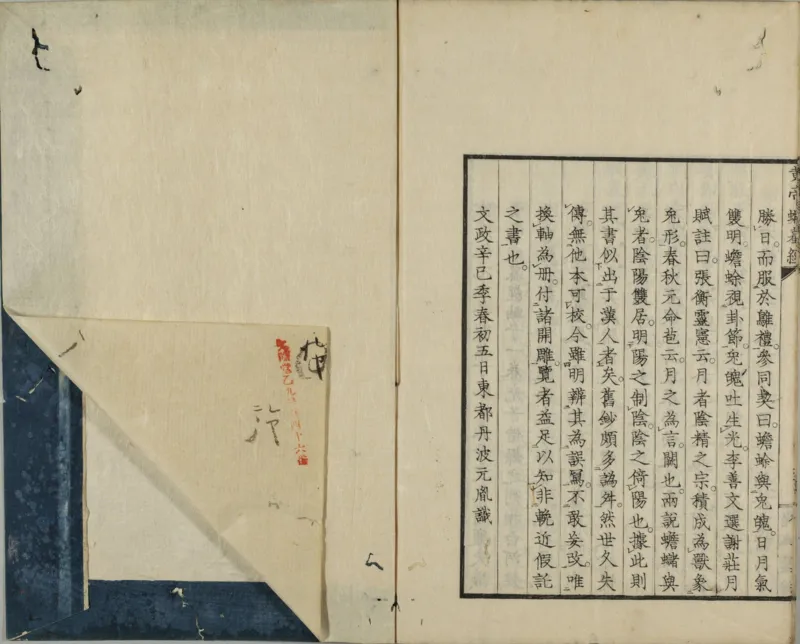 勝日而服於雕禮參同契曰蟾蜍與兎魄日月氣
雙明蟾蜍視卦節兎魄吐生光李善文選謝莊月
賦註曰張衡靈憲云月者陰精之宗積成為獸象
兎形春秋元命苞云月之為言闕也兩說蟾蠩與
兎者陰陽雙居明陽之制陰陰之倚陽也據此則
其書似出于漢人者矣舊鈔頗多譌舛然世久失
傳無他本可挍今雖明辨其為誤寫不敢妄改唯
換軸為册付諸開雕覽者益足以知非輓近假託
之書也
文政辛巳季春初五日東都丹波元胤識